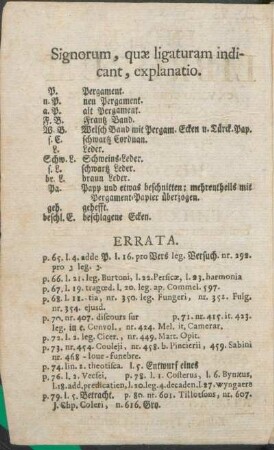 Signorum, quæ ligaturam indi-
cant, explanatio.
P. Pergament.
n. P. neu Pergament.
a. P. alt Pergament.
F. B. Frantz Band.
W. B. Welsch Band mit Pergam. Ecken u. Türck. Pap.
s. C. schwartz Corduan.
L. Leder.
Schw. L. Schweins-Leder.
s. L. schwartz Leder.
br. L. braun Leder.
Pa. Papp und etwas beschnitten; mehrentheils mit
Pergament-Papier überzogen.
geh. gehefft.
beschl. E. beschlagene Ecken.
ERRATA.
p. 65. l. 4. adde P. l. 16. pro Vers leg. Versuch. nr. 292.
pro 3 leg. 3.
p. 66. l. 21. leg. Burtoni, l. 22. Persicæ, l. 23. harmonia
p. 67. l. 19. tragœd. l. 20. leg. ap. Commel. 597.
p. 68. l. 18. tia, nr. 350. leg. Fungeri, nr. 352. Fulg.
nr. 354. ejusd.
p. 70. nr. 407. discours sur p. 71. nr. 415. it. 423.
leg. in e. Convol., nr. 424. Mel. it. Camerar.
p. 72. l. 2. leg. Cicer., nr. 449. Marc. Opit.
p. 73. nr. 454. Couleji, nr. 458. b. Pincierii, 459. Sabini
nr. 468. lour-funebre.
p. 74. lin. 2. theotisca. l. 5. Entwurf eines
p. 76. l. 2. Vecsei, p. 78. l. 1. Costerus, l. 6. Bynæus,
l. 18. add. predicatien, l. 20. leg. 4. decaden. l. 27. wyngaerts
p. 79. l. 5. Betracht. p. 80. nr. 601. Tillotsons, nr. 607.
J. Chp. Coleri, n. 616. Gry.